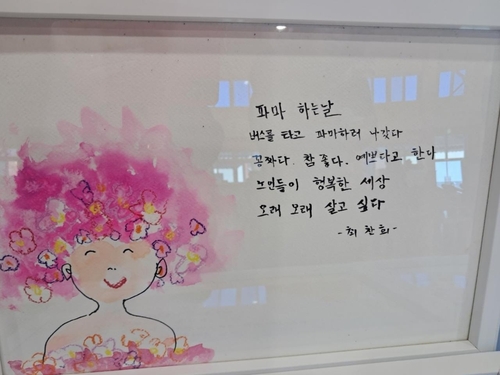 파마 하는날
버스를 타고 파마하러 나갔다
꽁짜다. 참 좋다. 예쁘다고 한다
노인들이 행복한 세상
오래 오래 살고 싶다
- 최 찬 희 -